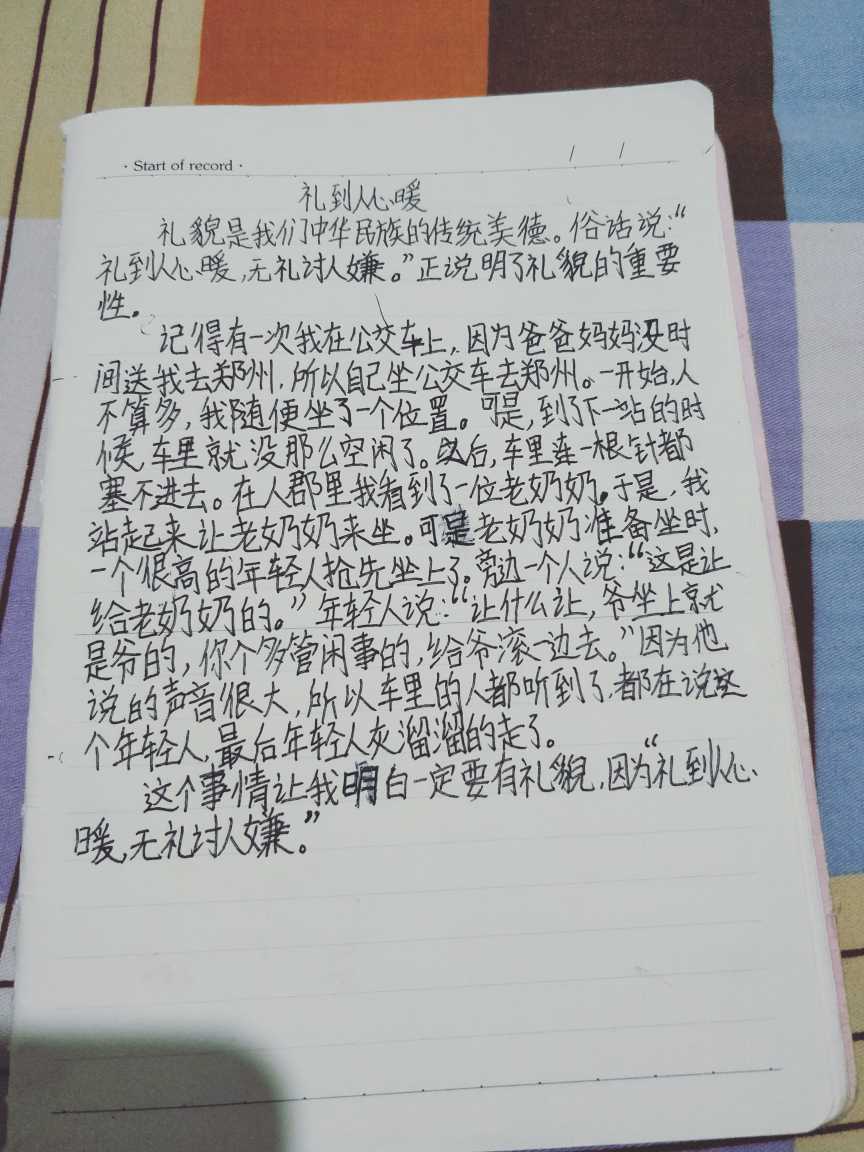 · Start of record ·
/ /
礼到人心暖
礼貌是我们中华民族的传统美德。俗话说:“
礼到人心暖,无礼讨人嫌。”正说明了礼貌的重要
性。
记得有一次我在公交车上,因为爸爸妈妈没时
间送我去郑州,所以自己坐公交车去郑州。一开始,人
不算多,我随便坐了一个位置。可是,到了下一站的时
候,车里就没那么空闲了。以后,车里连一根针都
塞不进去。在人群里我看到了一位老奶奶。于是,我
站起来让老奶奶来坐。可是老奶奶准备坐时,
一个很高的年轻人抢先坐上了。旁边一个人说:“这是让
给老奶奶的。”年轻人说:“让什么让,爷坐上就
是爷的,你个多管闲事的,给爷滚一边去。”因为他
说的声音很大,所以车里的人都听到了,都在说这
个年轻人,最后年轻人灰溜溜的走了。
这个事情让我明白一定要有礼貌,因为“礼到人心
暖,无礼讨人嫌。”